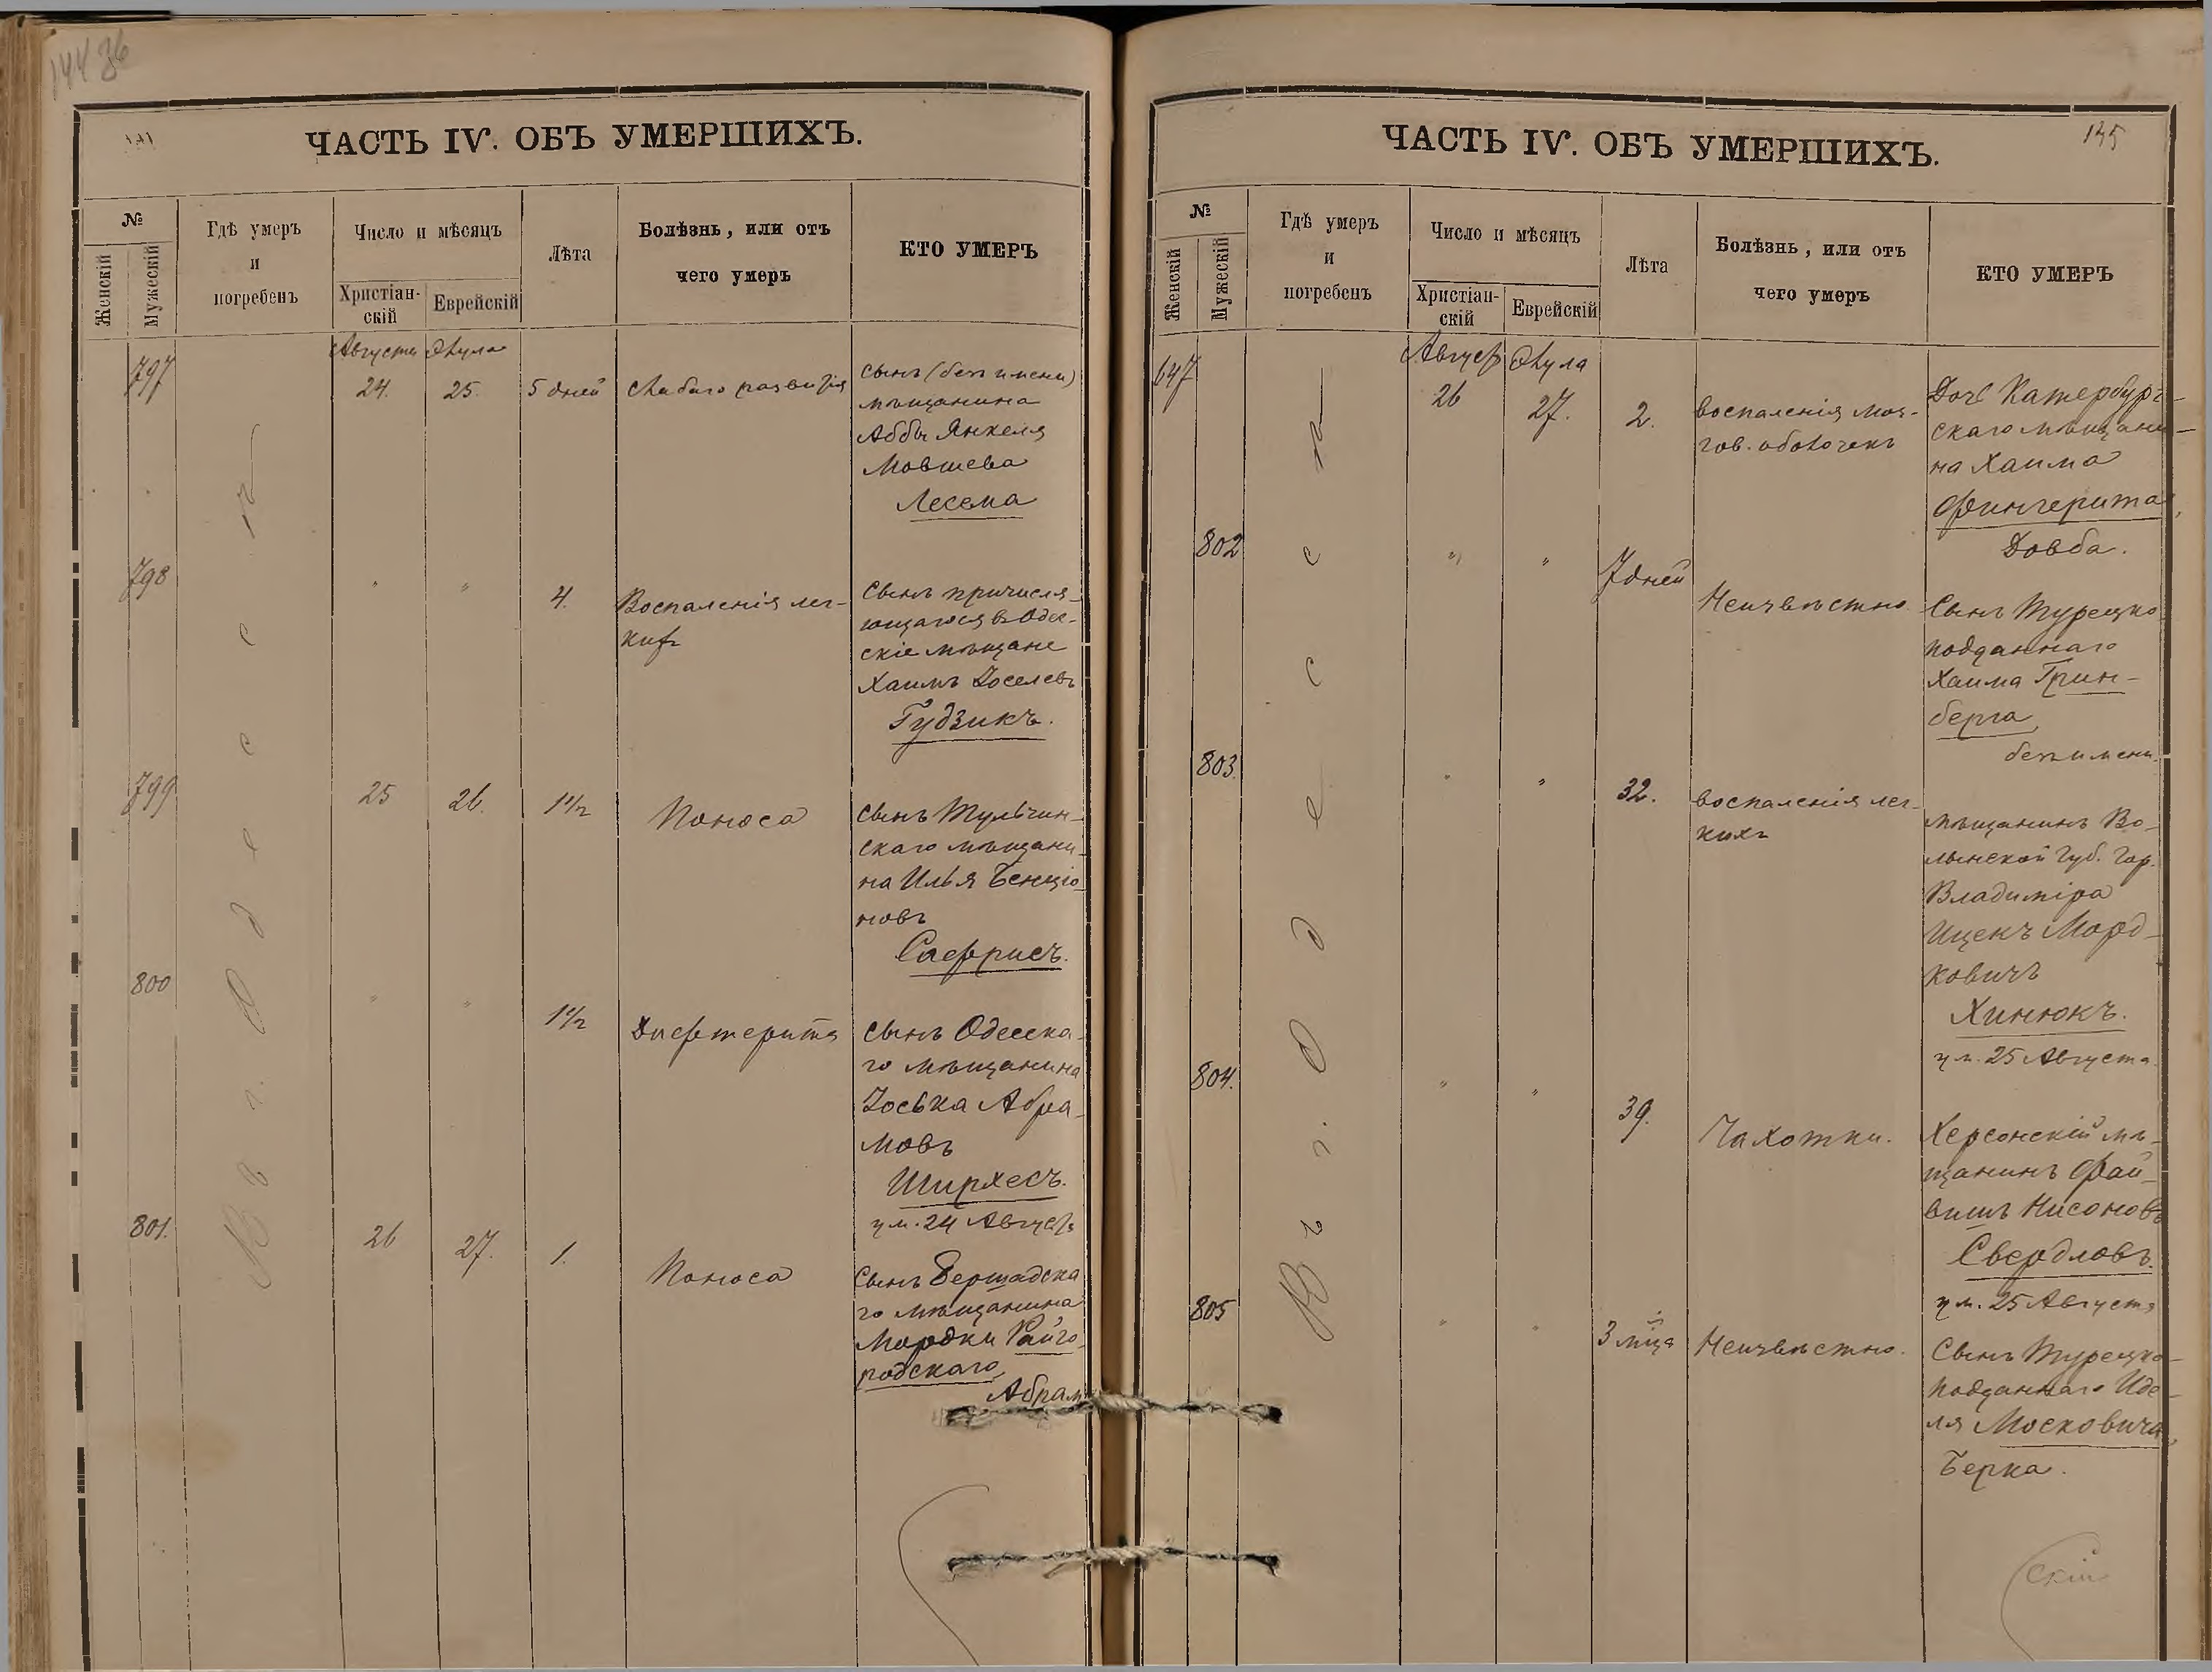 144 36
ЧАСТЬ IV. ОБЪ УМЕРШИХЪ.
№
Женскій
Мужескій
Гдѣ умеръ
и
погребенъ
Число и мѣсяцъ
Христіан-
скій
Еврейскій
Лѣта
Болѣзнь, или отъ
чего умеръ
КТО УМЕРЪ
Въ г. Одессѣ
Августа Элула
797 24. 25. 5 дней Слабаго развитія
Сынъ (безъ имени)
мѣщанина
Аббы Янкеля
Мовшева
Лесема
798 " " 4. Воспаленія лег-
кихъ
Сынъ причисля-
ющагося въ Одес-
скіе мѣщане
Хаимъ Іоселевъ
Гудзикъ.
799 25 26. 1 1/2 Поноса
Сынъ Тульчин-
скаго мѣщани-
на Илья Бенціо-
новъ
Сафрисъ.
800 " " 1 1/2 Дифтерита
Сынъ Одесска-
го мѣщанина
Іоська Абра-
мовъ
Ширхесъ.
ум. 24 Августа
801. 26 27. 1. Поноса
Сынъ Бершадска
го мѣщанина
Мордки Райго-
родскаго,
Абрам
ЧАСТЬ IV. ОБЪ УМЕРШИХЪ.
145
№
Женскій
Мужескій
Гдѣ умеръ
и
погребенъ
Число и мѣсяцъ
Христіан-
скій
Еврейскій
Лѣта
Болѣзнь, или отъ
чего умеръ
КТО УМЕРЪ
Въ г. Одессѣ
Август Элула
647 26 27. 2. воспаленія моз-
гов. оболочекъ
Дочь Катербург-
скаго мѣщани-
на Хаима
Фингерита,
Довба.
802 " " 7 дней Неизвѣстно
Сынъ Турецко
подданнаго
Хаима Грин-
берга,
безъ имени.
803. " " 32. воспаленія лег-
кихъ
мѣщанинъ Во-
лынской губ. гор.
Владиміра
Иценъ Морд-
ковичъ
Хинюкъ.
ум. 25 Августа
804. " " 39. Чахотки.
Херсонскій мѣ-
щанинъ Фай-
вишъ Нисоновъ
Свердловъ.
ум. 25 Августа
805 " " 3 мца Неизвѣстно.
Сынъ Турецко-
подданнаго Иде-
ля Московича,
Берка.
скій